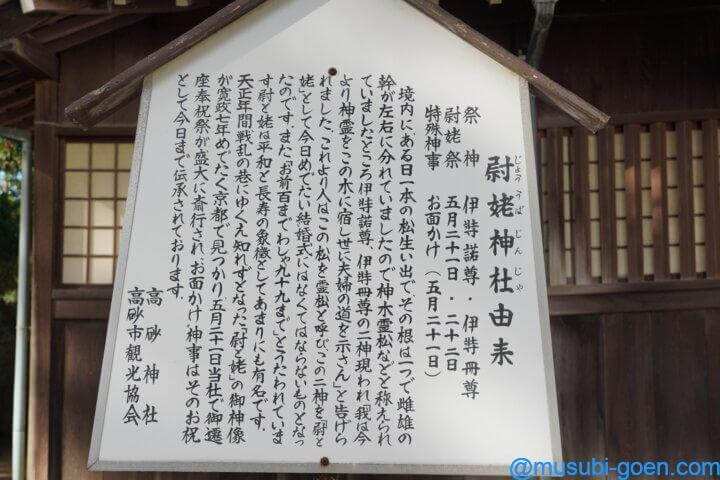 尉姥神社由来
じょう うば じん じゃ
祭神 伊弉諾尊・伊弉冊尊
尉姥祭 五月二十一日・二十二日
特殊神事 お面かけ(五月二十一日)
境内にある日一本の松生い出で、その根は一つで雌雄の
幹が左右に分れていましたので神木霊松などと称えられ
ていましたところ伊弉諾尊、伊弉冊尊の二神現われ「我は今
より神霊をこの木に宿し世に夫婦の道を示さん」と告げら
れました、これより人はこの松を霊松と呼び、この二神を「尉と
姥」として今日めでたい結婚式にはなくてはならないものとなっ
たのです。また、「お前百までわしゃ九十九まで」とうたわれていま
す尉と姥は平和と長寿の象徴としてあまりにも有名です。
天正年間戦乱の巷にゆくえ知れずとなった「尉と姥」の御神像
が寛政七年めでたく京都で見つかり五月二十一日当社で御遷
座奉祝祭が盛大に斎行され、お面かけ神事はそのお祝
として今日まで伝承されております。
高砂神社
高砂市観光協会
@musubi-goen.com